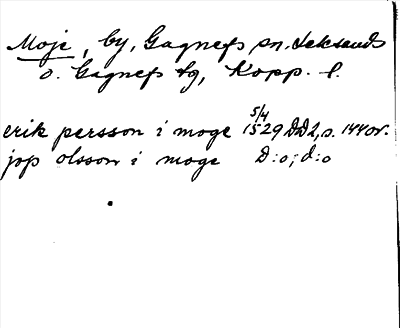 Moje, by, Gagnefs sn. Leksands
o. Gagnefs tg, Kopp. l.
5/4
erik persson i moge 1529 DD2, s. 144 or.
jop olsson i moge D:o; d:o